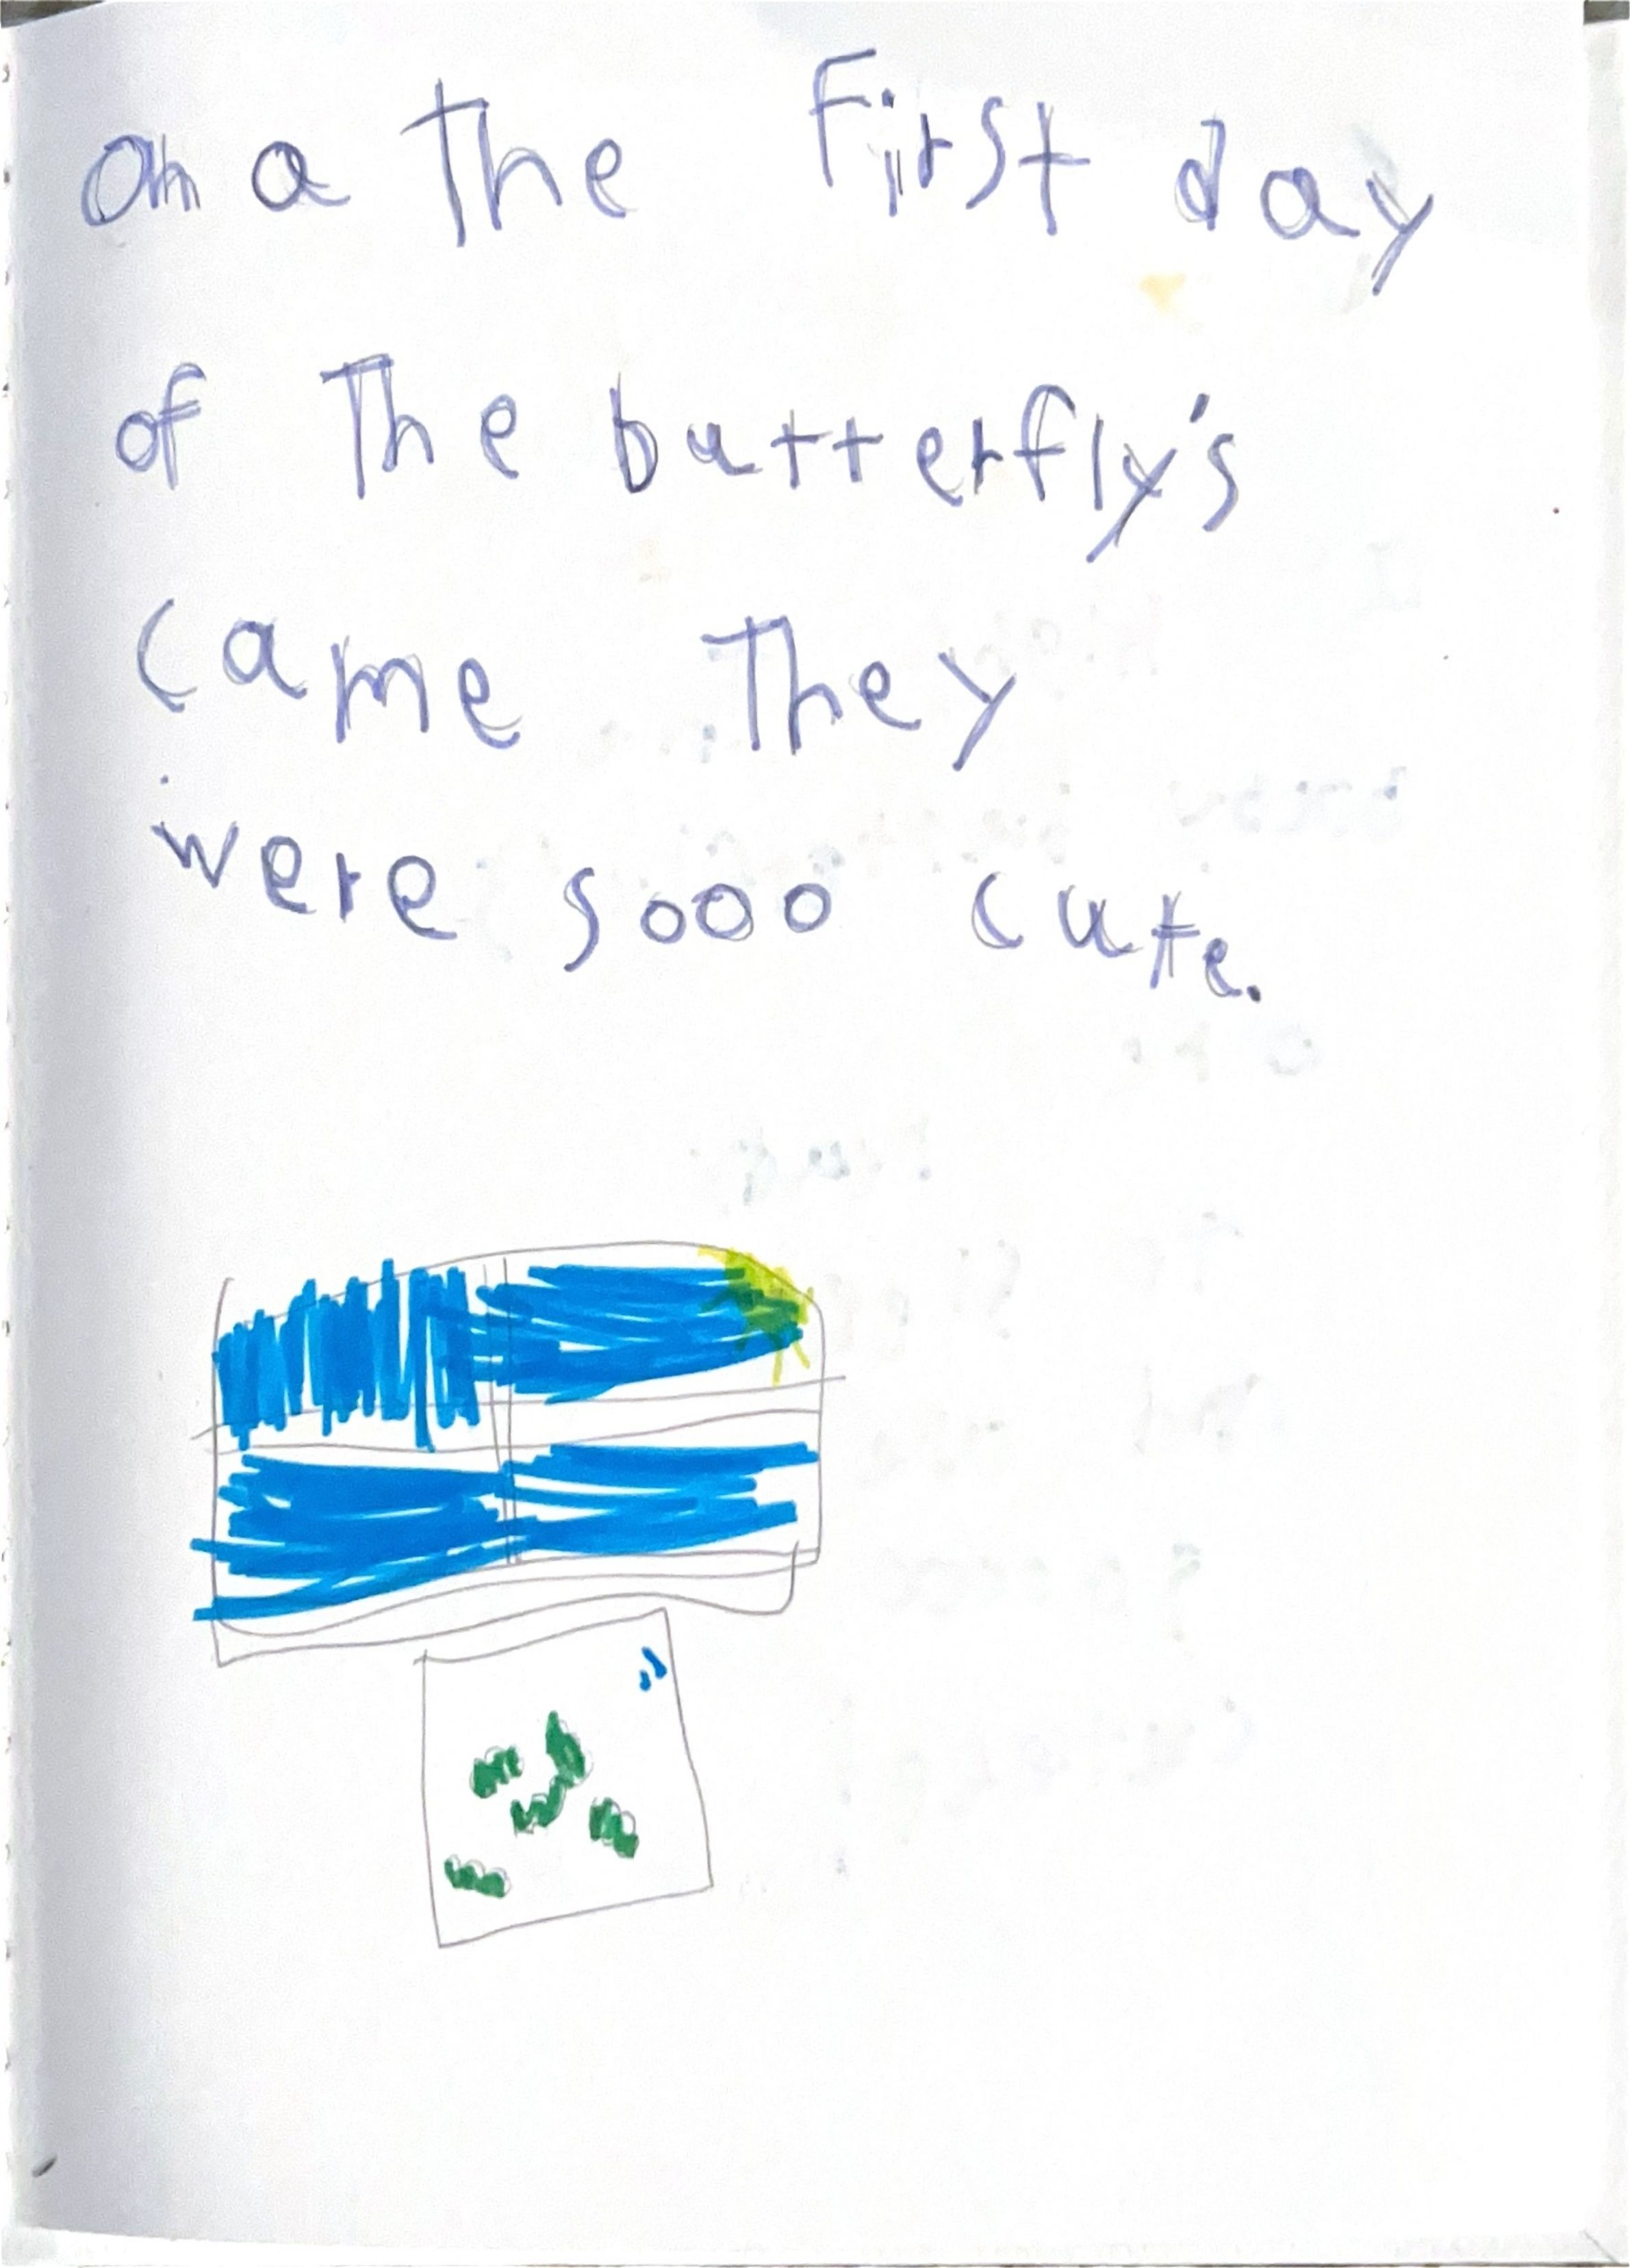 on a the First day
of The butterfly's
came They
were sooo cute.